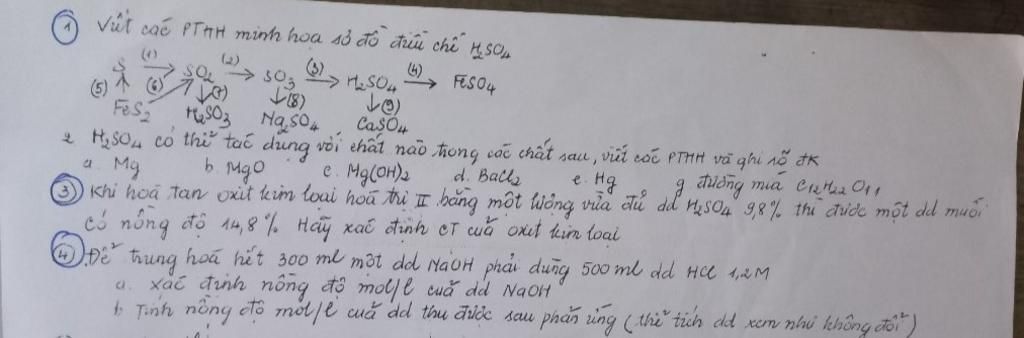 ① Viết các PTHH minh hoạ sơ đồ điều chế H₂SO₄
S (1)→ SO₂ (2)→ SO₃ (3)→ H₂SO₄ (4)→ FeSO₄
(5)↑ (6)↗ ↓(7) ↓(8) ↓(9)
FeS₂ H₂SO₃ Na₂SO₄ CaSO₄
2 H₂SO₄ có thể tác dụng với chất nào trong các chất sau, viết các PTHH và ghi rõ đk
a. Mg b. MgO c. Mg(OH)₂ d. BaCl₂ e. Hg g. đường mía C₁₂H₂₂O₁₁
③ Khi hoá tan oxit kim loại hoá trị II bằng một lượng vừa đủ dd H₂SO₄ 9,8% thì được một dd muối
có nồng độ 14,8% Hãy xác định CT của oxit kim loại
④. Để trung hoá hết 300 ml một dd NaOH phải dùng 500 ml dd HCl 1,2M
a. xác định nồng độ mol/l của dd NaOH
b Tính nồng độ mol/l của dd thu được sau phản ứng (thể tích dd xem như không đổi)